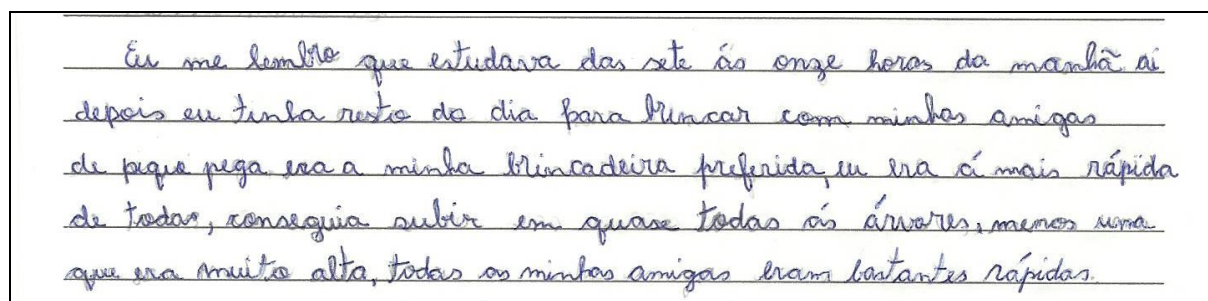 Eu me lembro que estudava das sete ás onze horas da manhã ai
depois eu tinha resto do dia para brincar com minhas amigas
de pique pega era a minha brincadeira preferida, eu era á mais rápida
de todas, conseguia subir em quase todas ás árvores, menos uma
que era muito alta, todas as minhas amigas eram bastantes rápidas.